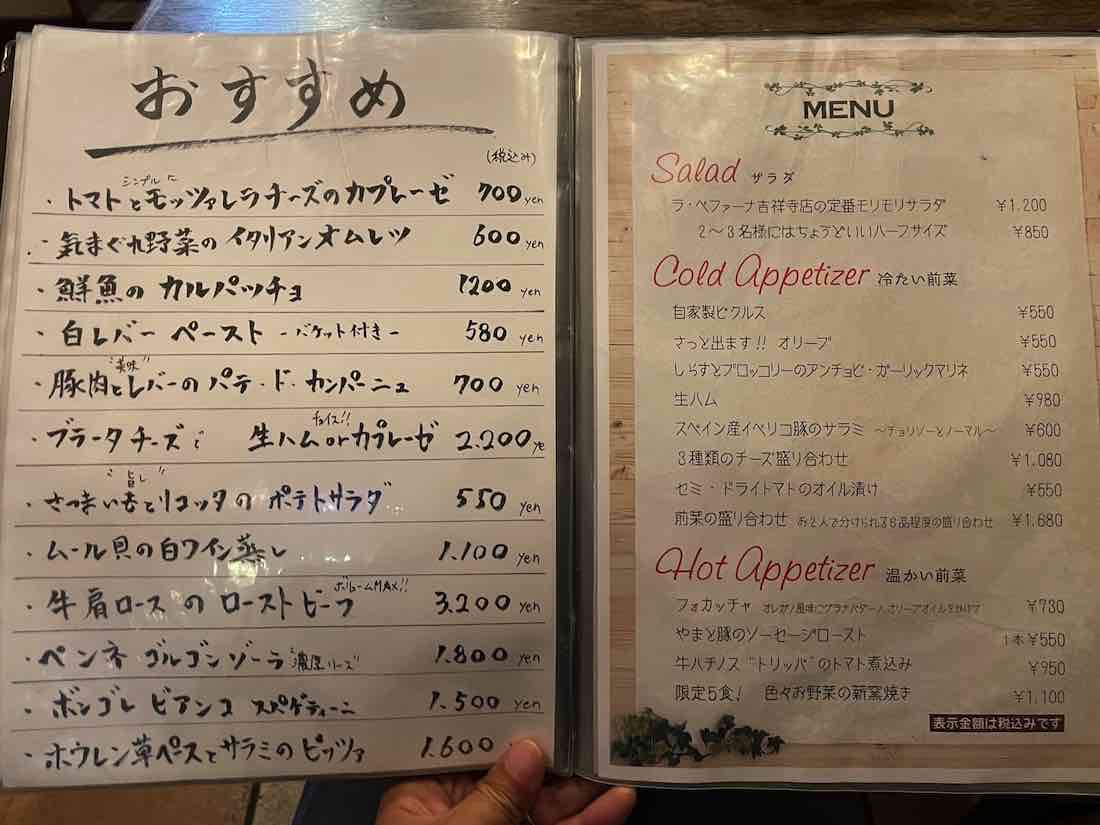 おすすめ
(税込み)
シンプルに
・トマトとモッツァレラチーズのカプレーゼ 700 yen
・気まぐれ野菜の イタリアンオムレツ 600 yen
・鮮魚の カルパッチョ 1200 yen
・白レバー ペースト -バケット付き- 580 yen
"美味"
・豚肉とレバーのパテ・ド・カンパーニュ 700 yen
チョイス!!
・ブラータチーズと 生ハム or カプレーゼ 2.200 ye
"旨し"
・さつまいもとリコッタの ポテトサラダ 550 yen
・ムール貝の白ワイン蒸し 1.100 yen
ボリュームMAX!!
・牛肩ロース の ローストビーフ 3.200 yen
・ペンネ ゴルゴンゾーラ "濃厚ソース" 1.800 yen
・ボンゴレ ビアンコ スパゲティーニ 1.500 yen
・ホウレン草ペースとサラミのピッツァ 1.600
MENU
Salad サラダ
ラ・ペファーナ吉祥寺店の定番モリモリサラダ ¥1,200
2〜3名様にはちょうどいいハーフサイズ ¥850
Cold Appetizer 冷たい前菜
自家製ピクルス ¥550
さっと出ます!! オリーブ ¥550
しらすとブロッコリーのアンチョビ・ガーリックマリネ ¥550
生ハム ¥980
スペイン産イベリコ豚のサラミ 〜チョリソーとノーマル〜 ¥600
3種類のチーズ盛り合わせ ¥1,080
セミ・ドライトマトのオイル漬け ¥550
前菜の盛り合わせ お2人で分けられる6品程度の盛り合わせ ¥1,680
Hot Appetizer 温かい前菜
フォカッチャ オレガノ風味にグラナパダーノ、オリーブオイルをかけて ¥730
やまと豚のソーセージロースト 1本¥550
牛ハチノス "トリッパ"のトマト煮込み ¥950
限定5食! 色々お野菜の薪窯焼き ¥1,100
表示金額は税込みです